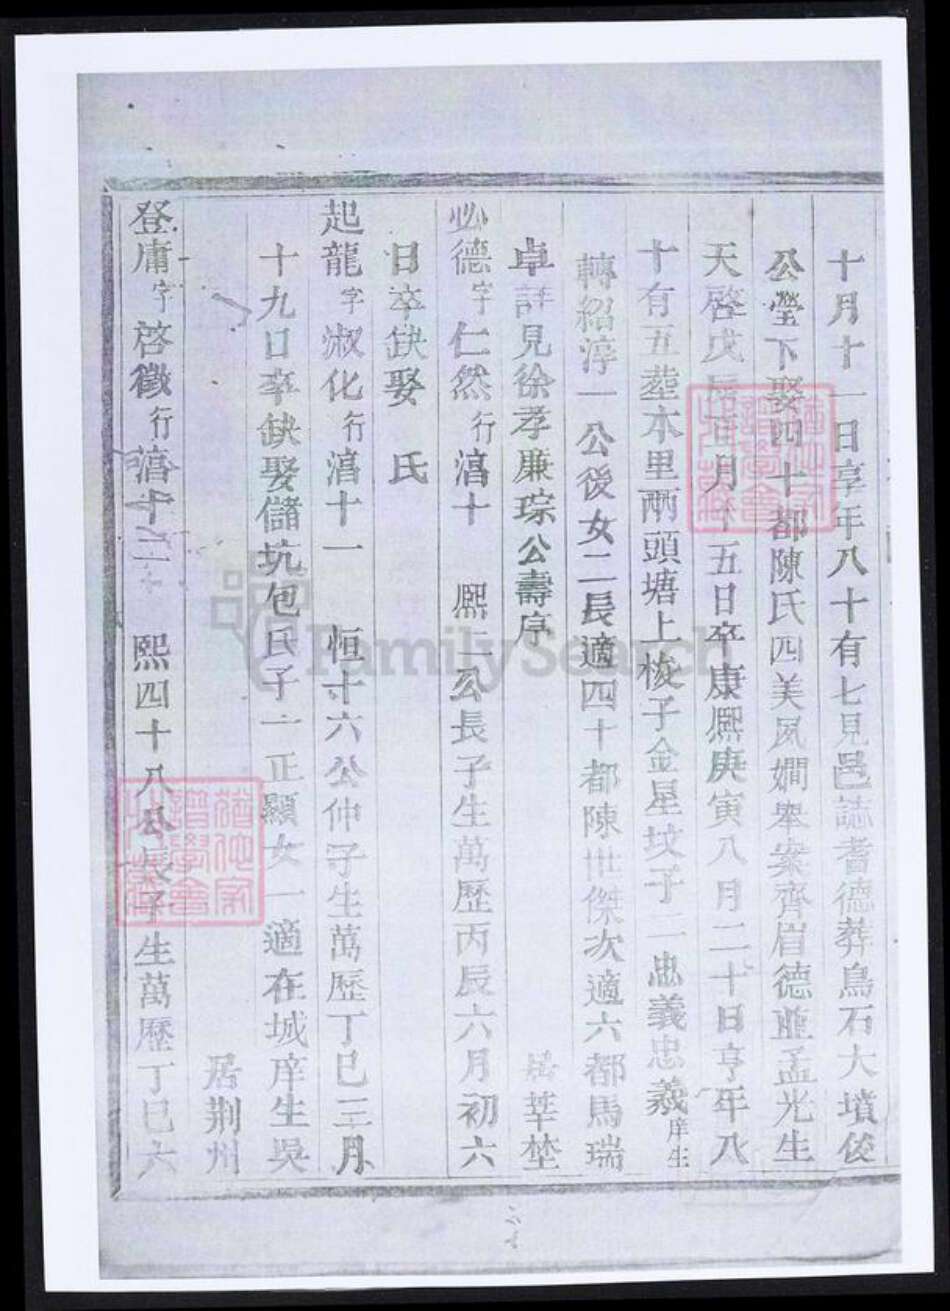 十月十一日享年八十有七見邑誌耆德葬鳥石大墳後
公瑩下娶四十都陳氏四美夙嫺舉案齊眉德並孟光生
天啓戊辰 月十五日卒康熙庚寅八月二十日享年八
十有五葬本里兩頭塘上梭子金星坟子二忠義忠羲庠生
轉紹淳一公後女二長適四十都陳世傑次適六都馬瑞
卓詳見徐孝廉琮公壽序 居莘埜
必德字仁然行湻十 熙二公長子生萬歷丙辰六月初六
日卒缺娶 氏
起龍字淑化行湻十一 恒十六公仲子生萬歷丁巳三月
十九日卒缺娶儲坑包氏子一正顯女一適在城庠生吳
居荆州
登庸字啓徵行湻十二 熙四十八公長子生萬歷丁巳六
FamilySearch